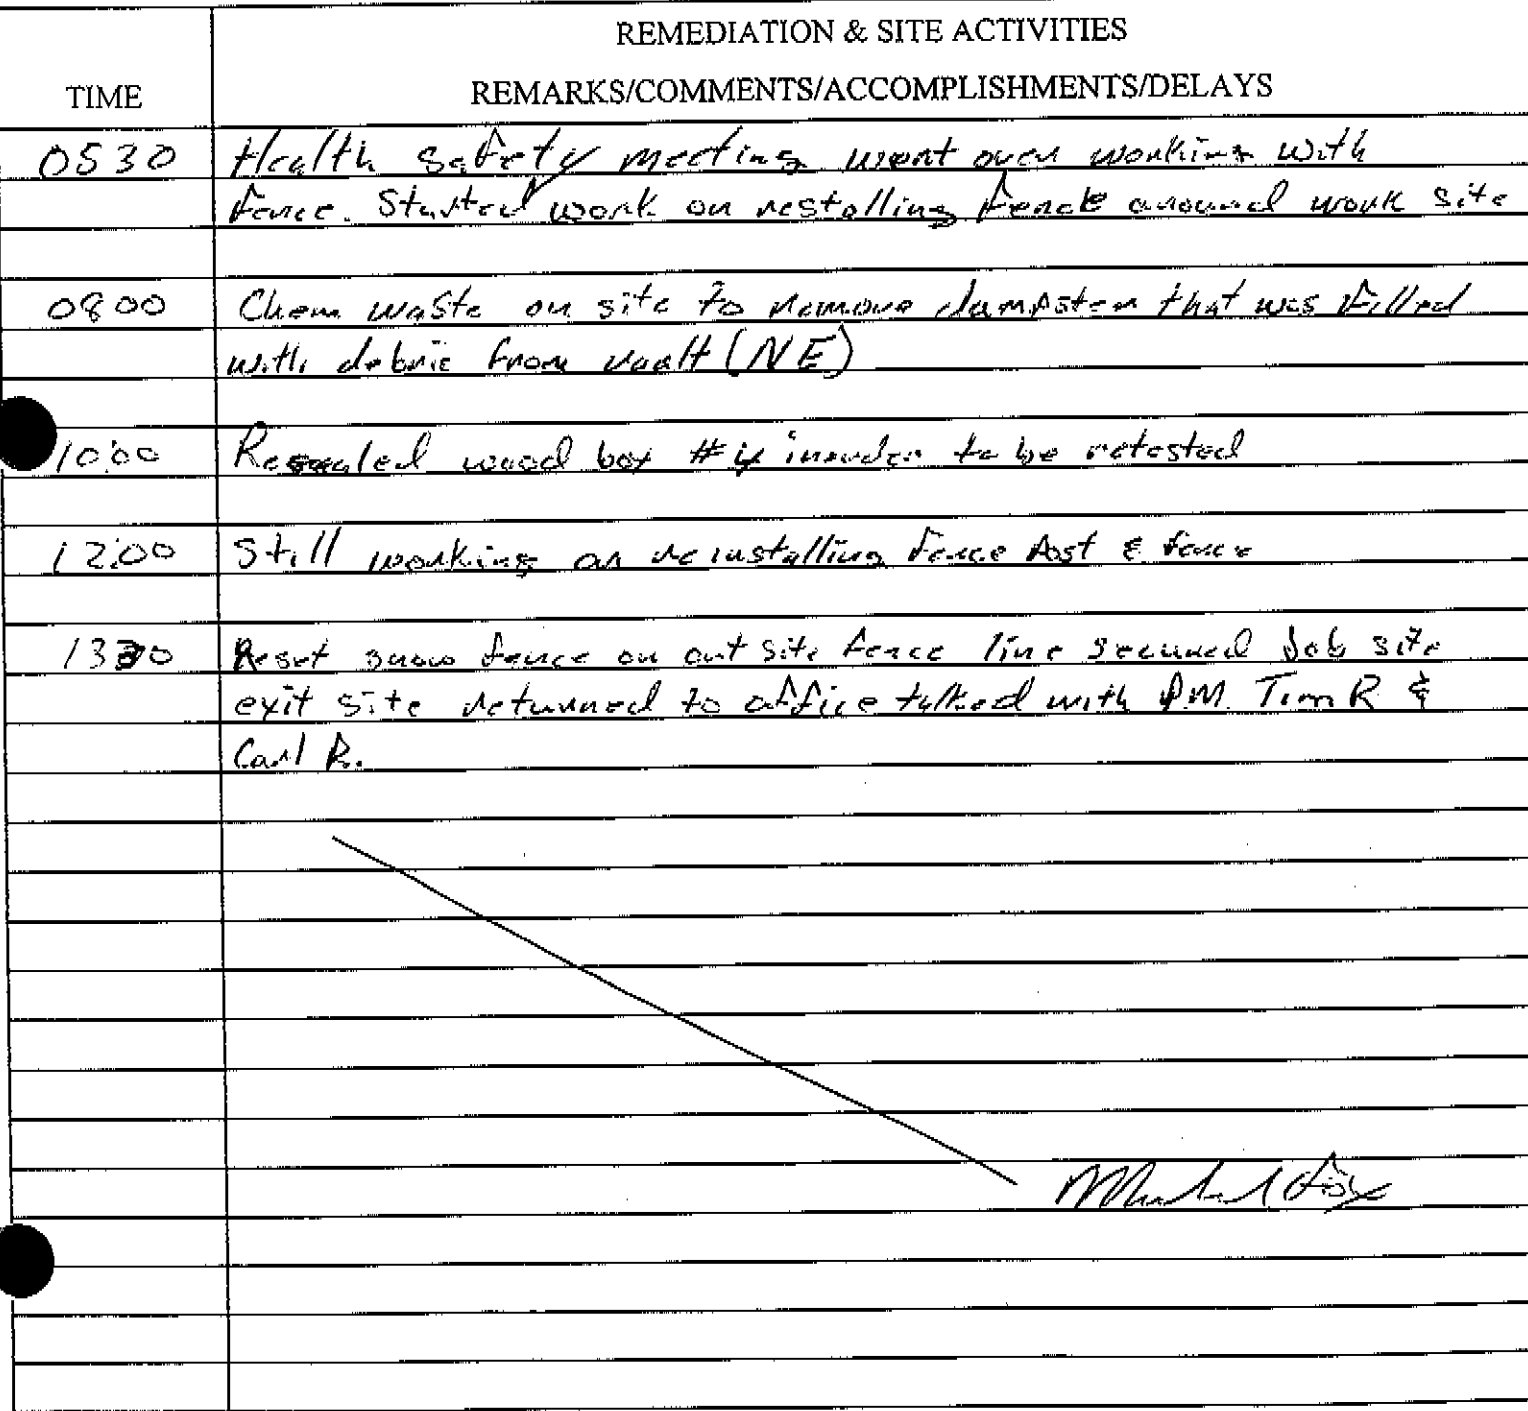 REMEDIATION & SITE ACTIVITIES
TIME
REMARKS/COMMENTS/ACCOMPLISHMENTS/DELAYS
0530 Health safety meeting went over working with
fence. Started work on restalling fence around work site
0800 Chem waste on site to remove dumpster that was filled
with debrie from vault (NE)
1000 wood box # to be retested
1200 Still working on reinstalling fence Post & fence
1330 Reset snow fence on out site fence line secured Job site
exit site returned to office talked with P.M. Tim R &
Carl R.